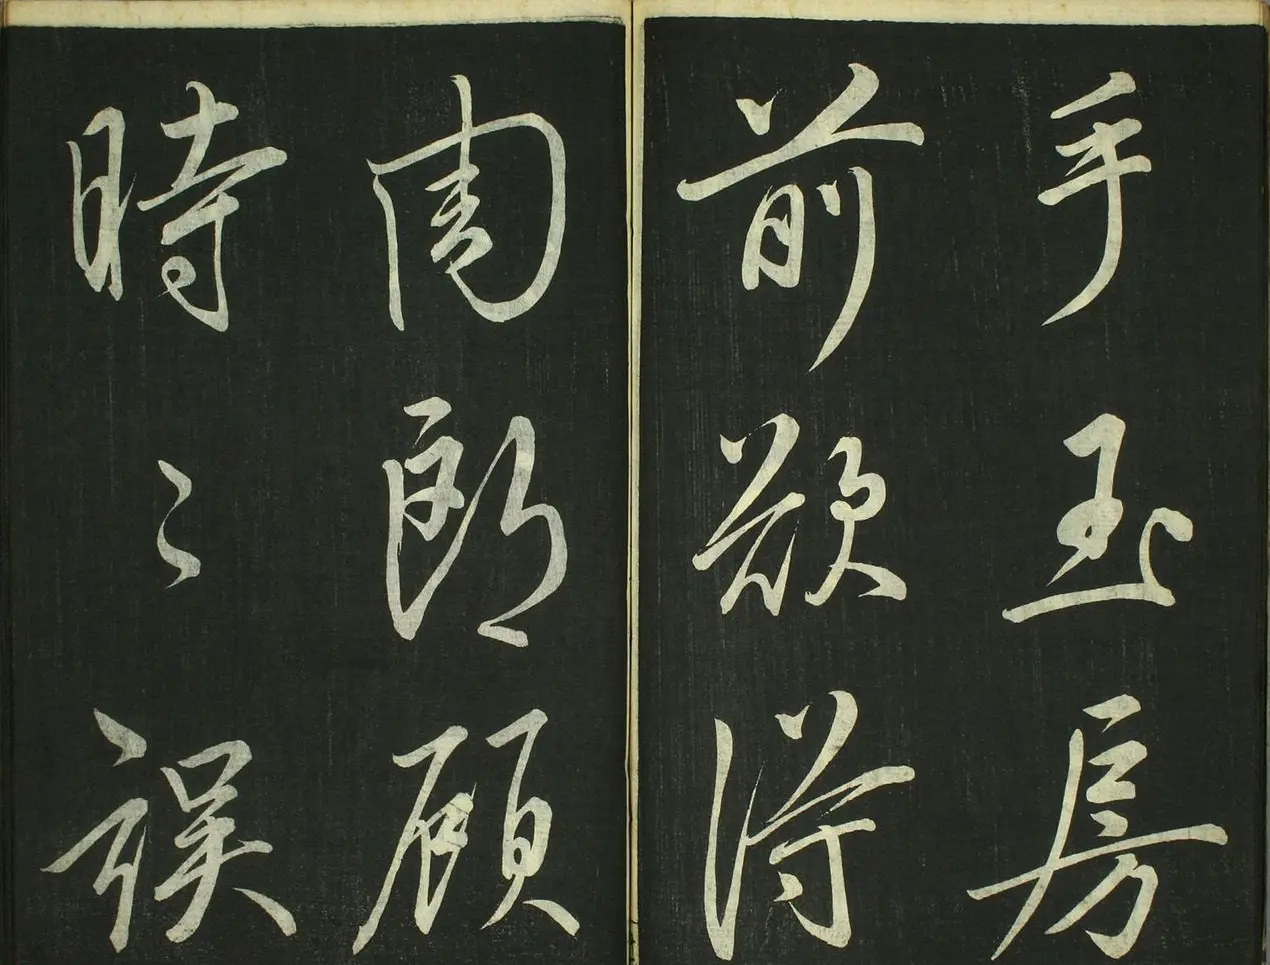 手玉房
前欲得
周郎顧
時〻誤